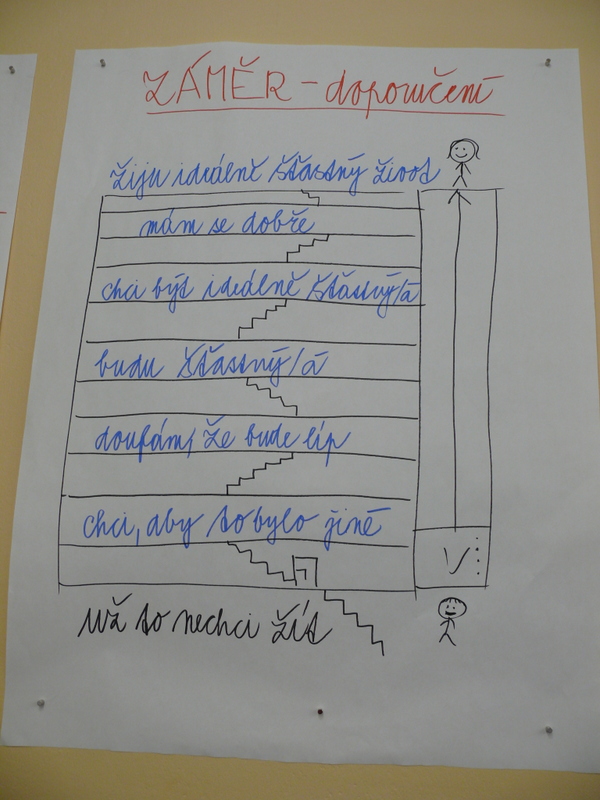 ZÁMĚR - doporučení
žiju ideálně šťastný život
mám se dobře
chci být ideálně šťastný/á
budu šťastný/á
doufám, že bude líp
chci, aby to bylo jiné
V
Už to nechci žít